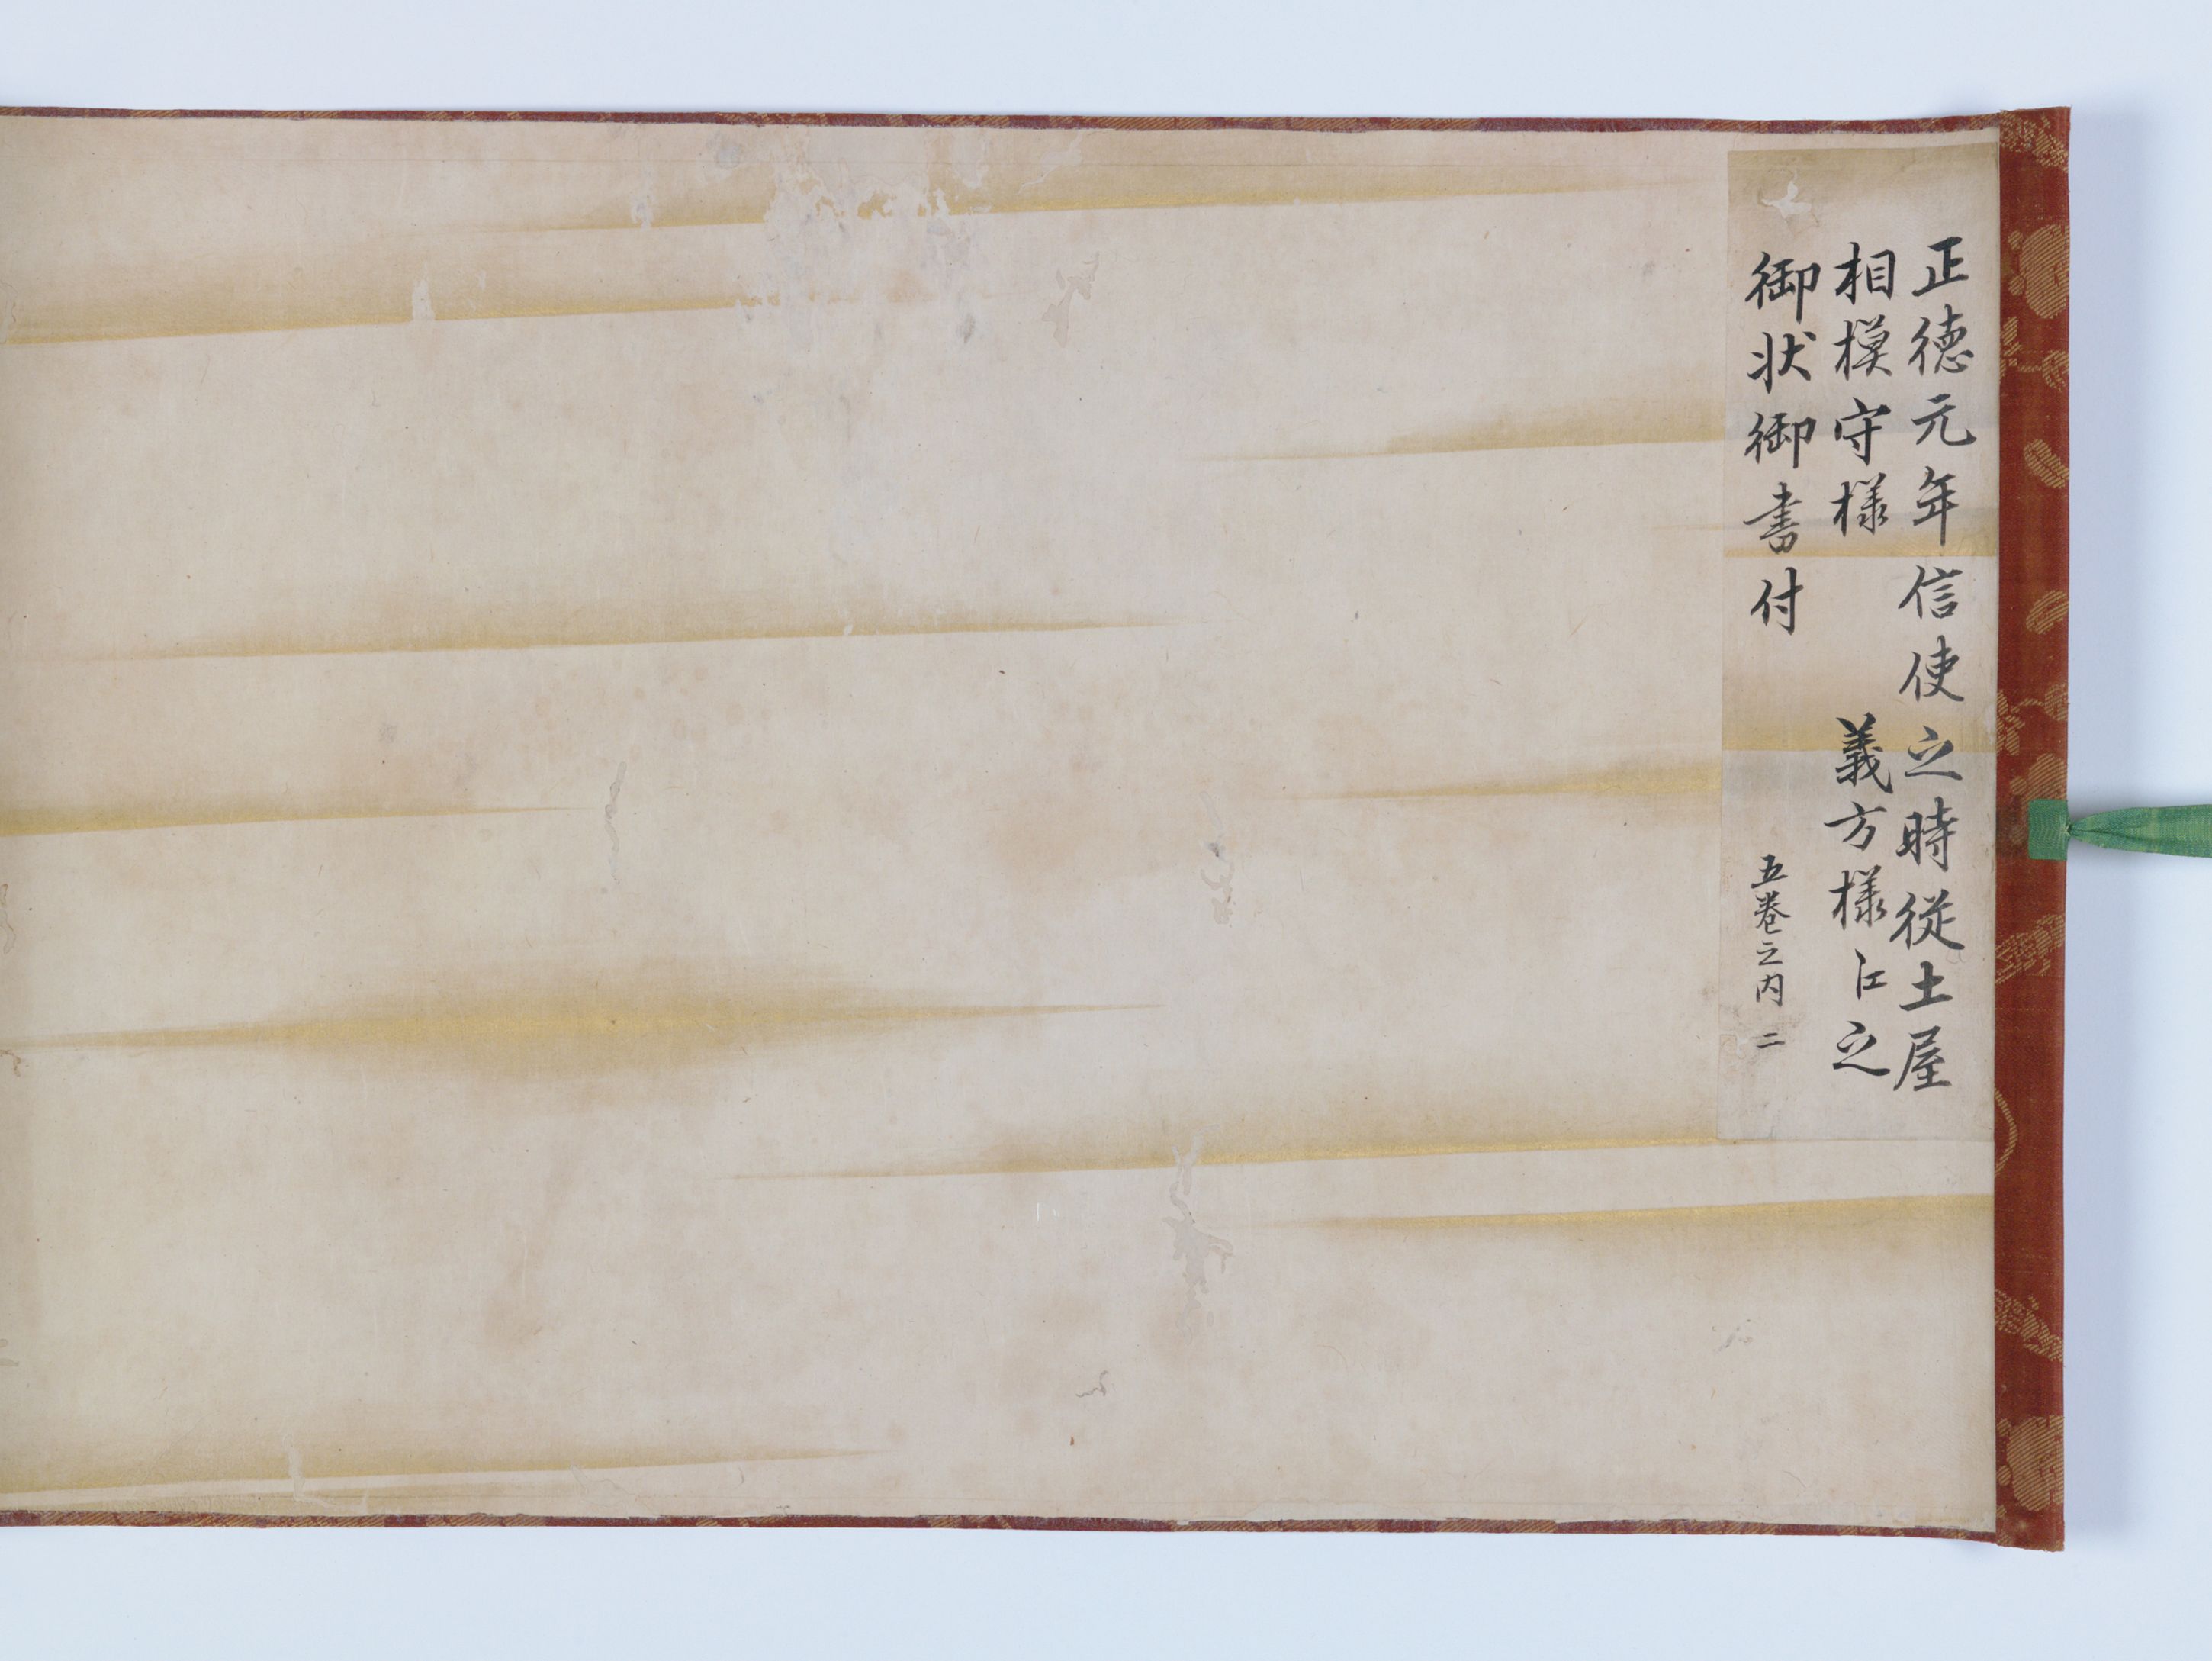 正徳元年信使之時従土屋
相模守様 義方様江之
御状御書付
五巻之内 二